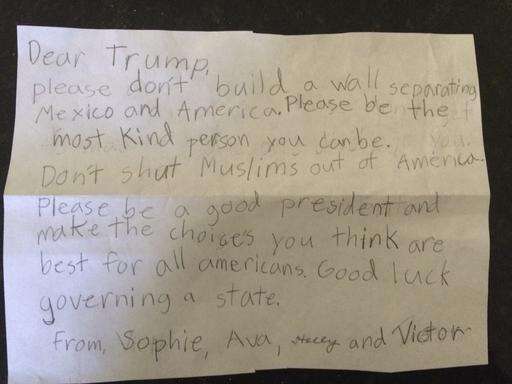 Dear Trump,
please don't build a wall separating
Mexico and America. Please be the
most kind person you can be.
Don't shut Muslims out of America.
Please be a good president and
make the choices you think are
best for all americans. Good luck
governing a state.
From, Sophie, Ava, and Victor